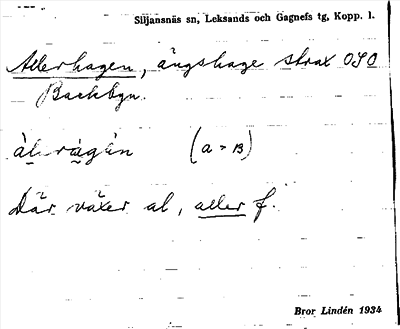 Siljansnäs sn, Leksands och Gagnefs tg, Kopp. l.
Allerhagen, ängshage strax OSO
Backbyn.
(a > B)
Där växer al, aller f.
Bror Lindén 1934